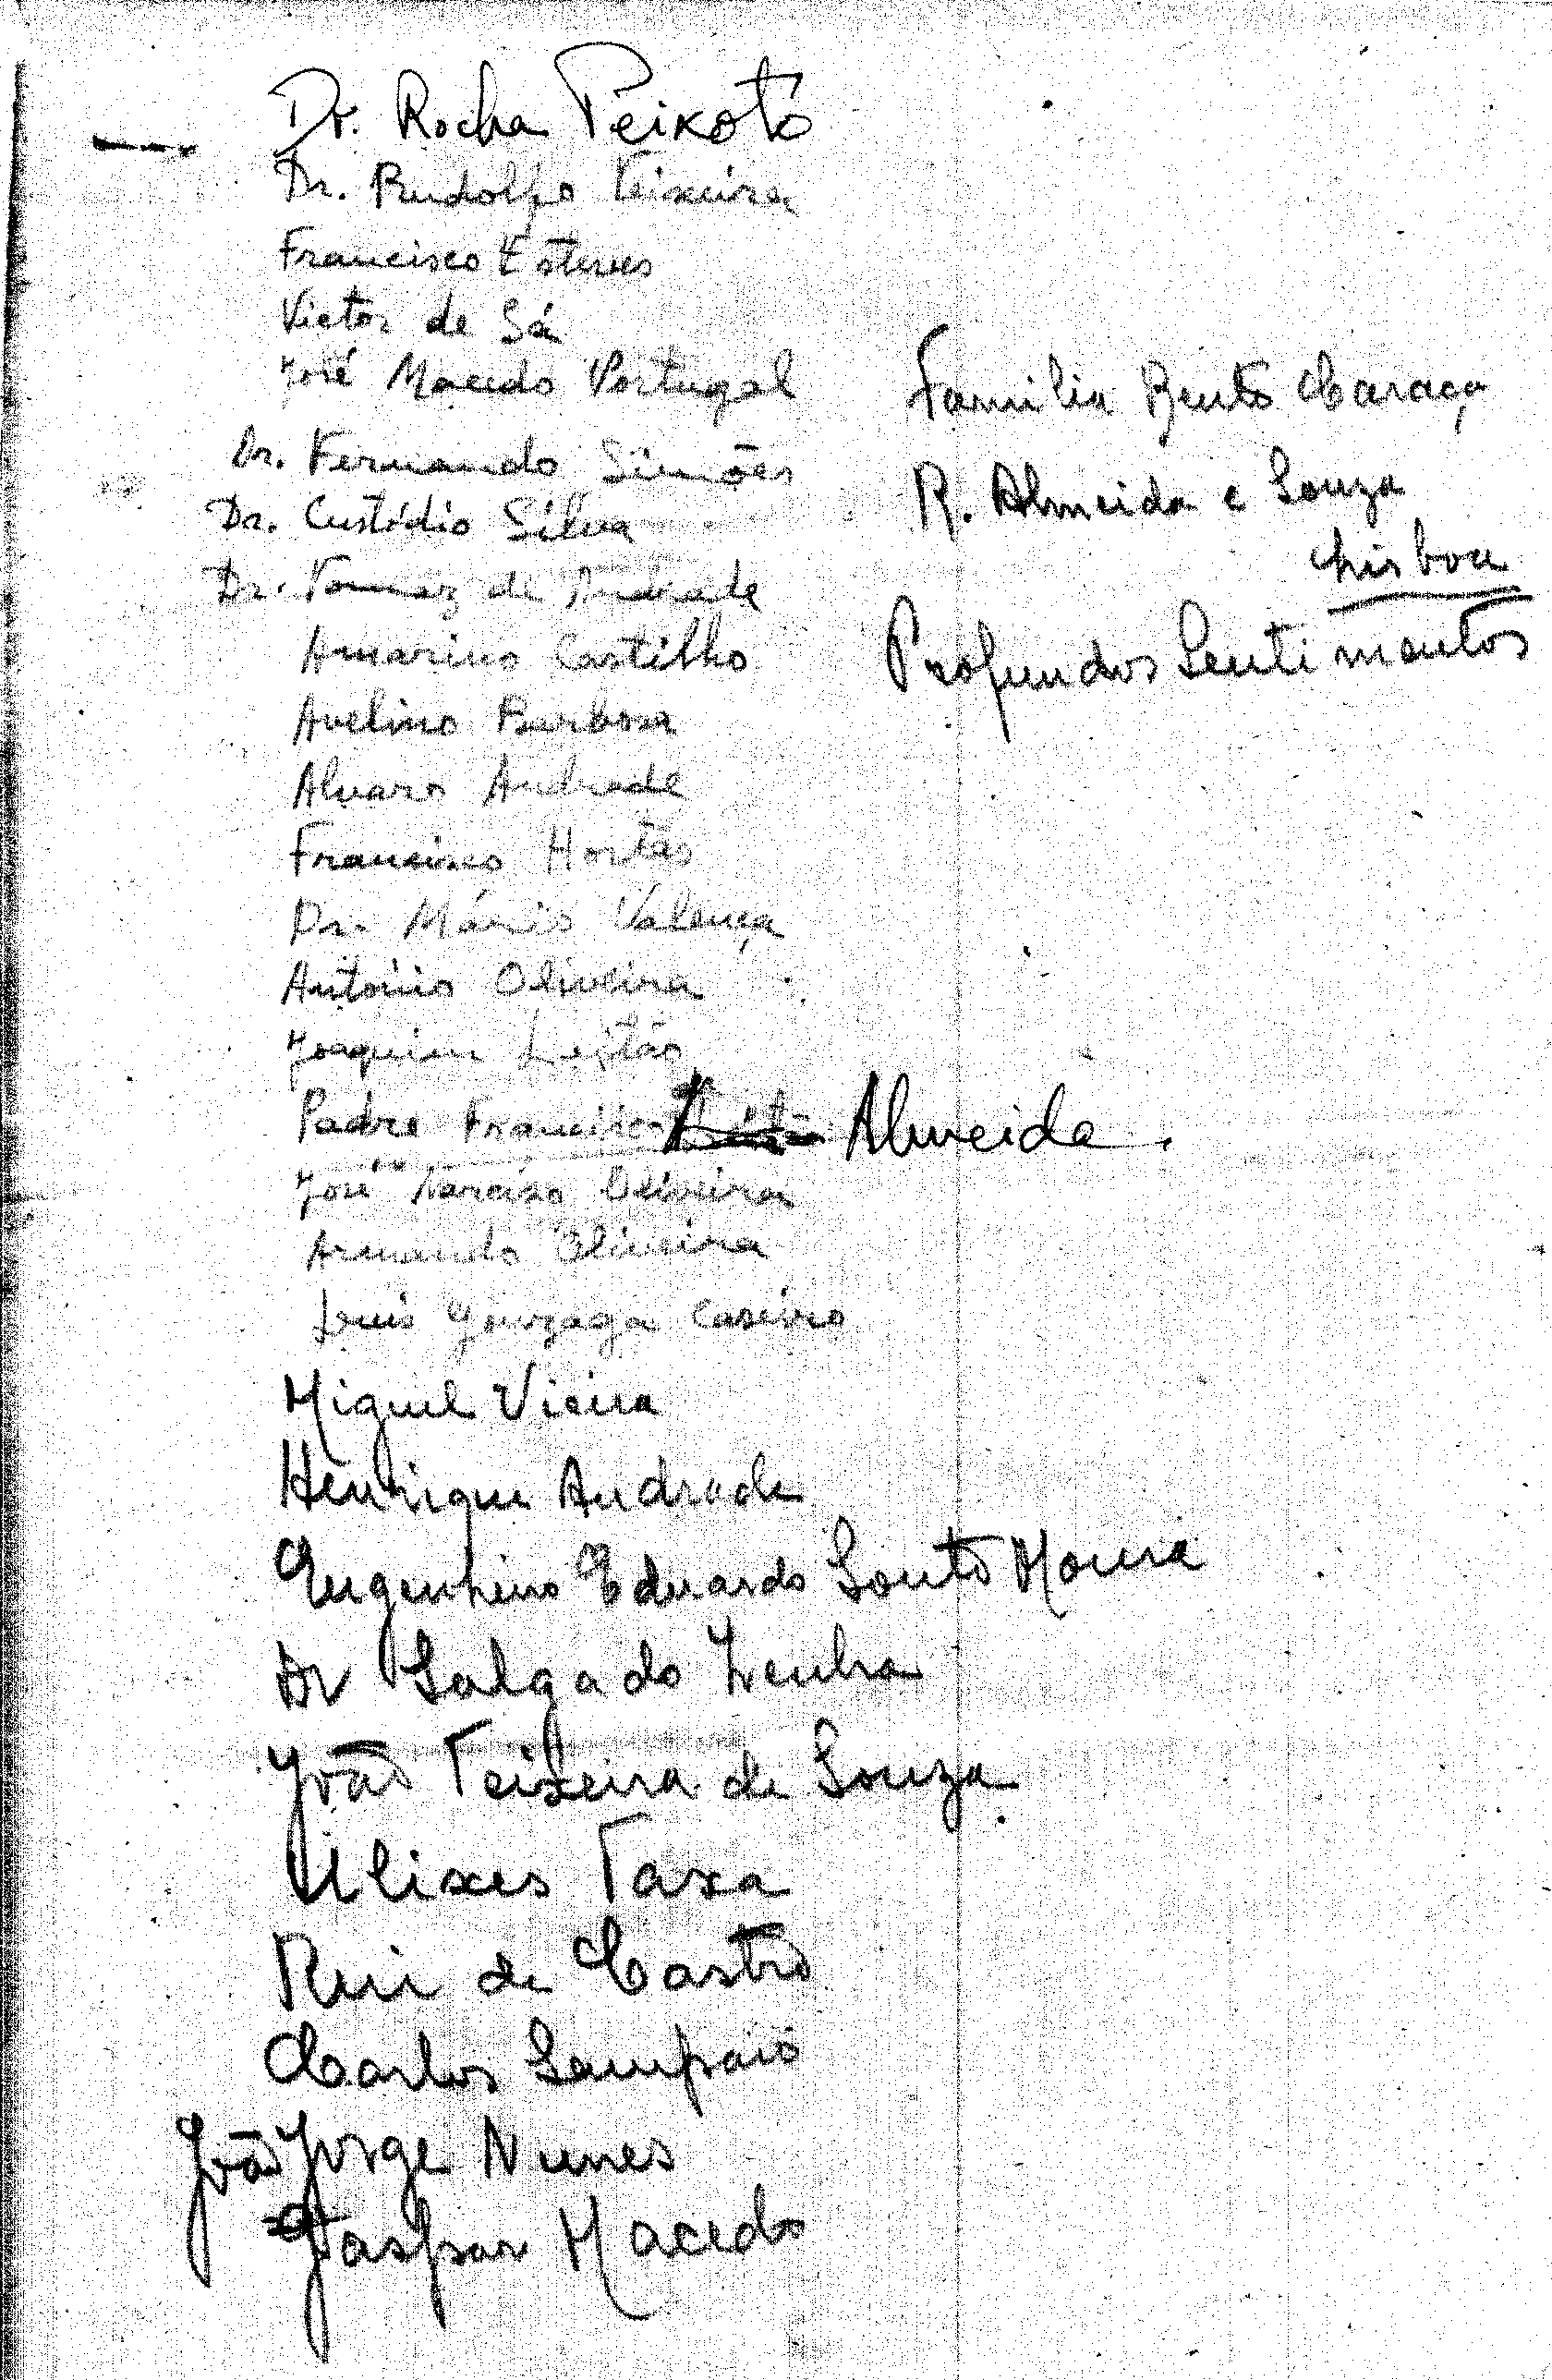 Dr. Rocha Peixoto
Dr. Rudolfo Teixeira
Francisco Esteves
Victor de Sá
José Macedo Portugal
Dr. Fernando Simões
Dr. Custódio Silva
Dr. Tomaz de Andrade
Amarino Castilho
Avelino Barbosa
Alvaro Andrade
Francisco Hortas
Dr. Mário Valença
António Oliveira
Joaquim Leitão
Padre Francisco Almeida.
José Narciso Oliveira
Armando Oliveira
Luis Gonzaga Caseiro
Miguel Vieira
Henrique Andrade
Engenheiro Eduardo Souto Moura
Dr Salgado Zenha
João Teixeira de Souza
Ulixes Taxa
Rui de Castro
Carlos Sampaio
João Jorge Nunes
Gaspar Macedo
Familia Bento Caraça
R. Almeida e Souza
Lisboa
Profundos Sentimentos